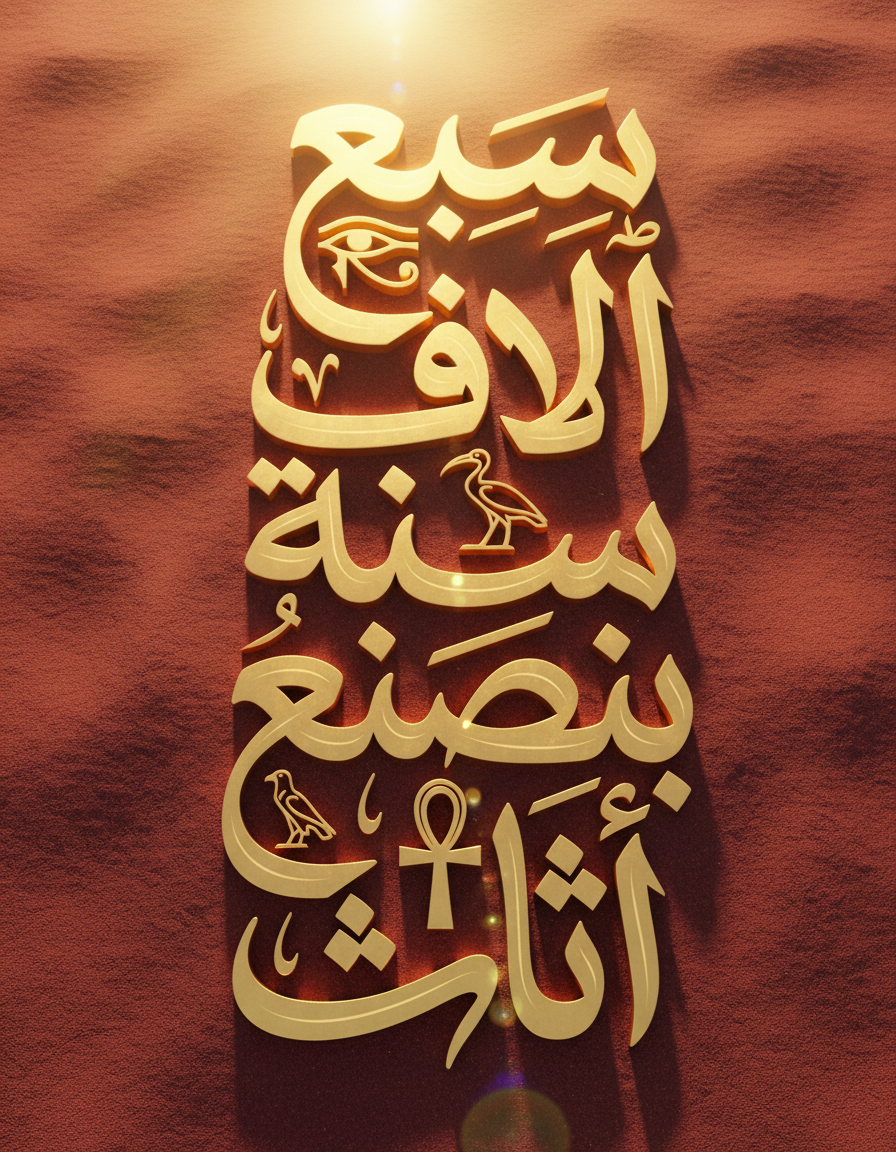 سَبِعِ
آلاف
سنة
بنصَنعُ
أثَاث